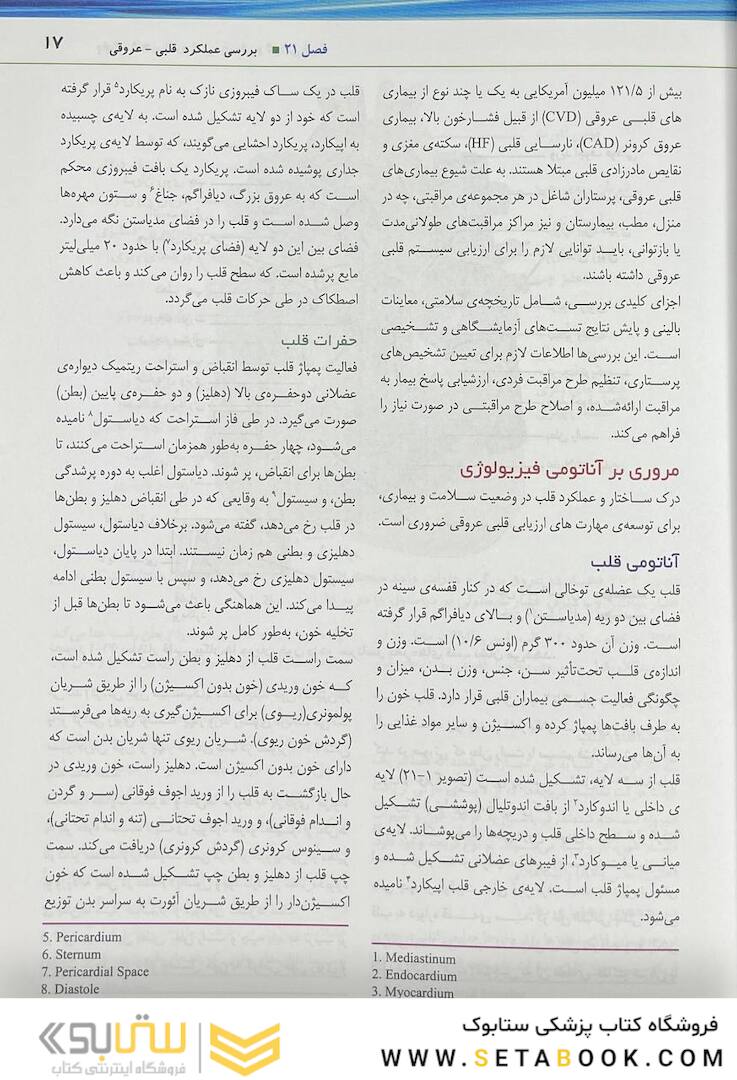 فصل ۲۱ ■ بررسی عملکرد قلبی - عروقی ۱۷
بیش از ۱۲۱/۵ میلیون آمریکایی به یک یا چند نوع از بیماری
های قلبی عروقی (CVD) از قبیل فشارخون بالا، بیماری
عروق کرونر (CAD)، نارسایی قلبی (HF)، سکته‌ی مغزی و
نقایص مادرزادی قلبی مبتلا هستند. به علت شیوع بیماری‌های
قلبی عروقی، پرستاران شاغل در هر مجموعه‌ی مراقبتی، چه در
منزل، مطب، بیمارستان و نیز مراکز مراقبت‌های طولانی‌مدت
یا بازتوانی، باید توانایی لازم را برای ارزیابی سیستم قلبی
عروقی داشته باشند.
اجزای کلیدی بررسی، شامل تاریخچه‌ی سلامتی، معاینات
بالینی و پایش نتایج تست‌های آزمایشگاهی و تشخیصی
است. این بررسی‌ها اطلاعات لازم برای تعیین تشخیص‌های
پرستاری، تنظیم طرح مراقبت فردی، ارزشیابی پاسخ بیمار به
مراقبت ارائه‌شده، و اصلاح طرح مراقبتی در صورت نیاز را
فراهم می‌کند.
مروری بر آناتومی فیزیولوژی
درک ساختار و عملکرد قلب در وضعیت سلامت و بیماری،
برای توسعه‌ی مهارت های ارزیابی قلبی عروقی ضروری است.
آناتومی قلب
قلب یک عضله‌ی توخالی است که در کنار قفسه‌ی سینه در
فضای بین دو ریه (مدیاستن۱) و بالای دیافراگم قرار گرفته
است. وزن آن حدود ۳۰۰ گرم (اونس ۱۰/۶) است. وزن و
اندازه‌ی قلب تحت‌تأثیر سن، جنس، وزن بدن، میزان و
چگونگی فعالیت جسمی بیماران قلبی قرار دارد. قلب خون را
به طرف بافت‌ها پمپاژ کرده و اکسیژن و سایر مواد غذایی را
به آن‌ها می‌رساند.
قلب از سه لایه، تشکیل شده است (تصویر ۱-۲۱) لایه
ی داخلی یا اندوکارد۲ از بافت اندوتلیال (پوششی) تشکیل
شده و سطح داخلی قلب و دریچه‌ها را می‌پوشاند. لایه‌ی
میانی یا میوکارد۳، از فیبرهای عضلانی تشکیل شده و
مسئول پمپاژ قلب است. لایه‌ی خارجی قلب اپیکارد۴ نامیده
می‌شود.
1. Mediastinum
2. Endocardium
3. Myocardium
قلب در یک ساک فیبروزی نازک به نام پریکارد۵ قرار گرفته
است که خود از دو لایه تشکیل شده است. به لایه‌ی چسبیده
به اپیکارد، پریکارد احشایی می‌گویند، که توسط لایه‌ی پریکارد
جداری پوشیده شده است. پریکارد یک بافت فیبروزی محکم
است که به عروق بزرگ، دیافراگم، جناغ۶ و ستون مهره‌ها
وصل شده است و قلب را در فضای مدیاستن نگه می‌دارد.
فضای بین این دو لایه (فضای پریکارد۷) با حدود ۲۰ میلی‌لیتر
مایع پرشده است. که سطح قلب را روان می‌کند و باعث کاهش
اصطکاک در طی حرکات قلب می‌گردد.
حفرات قلب
فعالیت پمپاژ قلب توسط انقباض و استراحت ریتمیک دیواره‌ی
عضلانی دوحفره‌ی بالا (دهلیز) و دو حفره‌ی پایین (بطن)
صورت می‌گیرد. در طی فاز استراحت که دیاستول۸ نامیده
می‌شود، چهار حفره به‌طور همزمان استراحت می‌کنند، تا
بطن‌ها برای انقباض، پر شوند. دیاستول اغلب به دوره پرشدگی
بطن، و سیستول۹ به وقایعی که در طی انقباض دهلیز و بطن‌ها
در قلب رخ می‌دهد، گفته می‌شود. برخلاف دیاستول، سیستول
دهلیزی و بطنی هم زمان نیستند. ابتدا در پایان دیاستول،
سیستول دهلیزی رخ می‌دهد، و سپس با سیستول بطنی ادامه
پیدا می‌کند. این هماهنگی باعث می‌شود تا بطن‌ها قبل از
تخلیه خون، به‌طور کامل پر شوند.
سمت راست قلب از دهلیز و بطن راست تشکیل شده است،
که خون وریدی (خون بدون اکسیژن) را از طریق شریان
پولمونری(ریوی) برای اکسیژن‌گیری به ریه‌ها می‌فرستد
(گردش خون ریوی). شریان ریوی تنها شریان بدن است که
دارای خون بدون اکسیژن است. دهلیز راست، خون وریدی در
حال بازگشت به قلب را از ورید اجوف فوقانی (سر و گردن
و اندام فوقانی)، و ورید اجوف تحتانی (تنه و اندام تحتانی)،
و سینوس کرونری (گردش کرونری) دریافت می‌کند. سمت
چپ قلب از دهلیز و بطن چپ تشکیل شده است که خون
اکسیژن‌دار را از طریق شریان آئورت به سراسر بدن توزیع
5. Pericardium
6. Sternum
7. Pericardial Space
8. Diastole
فروشگاه کتاب پزشکی ستابوک
WWW.SETABOOK.COM
ستابوک
فروشگاه اینترنتی کتاب